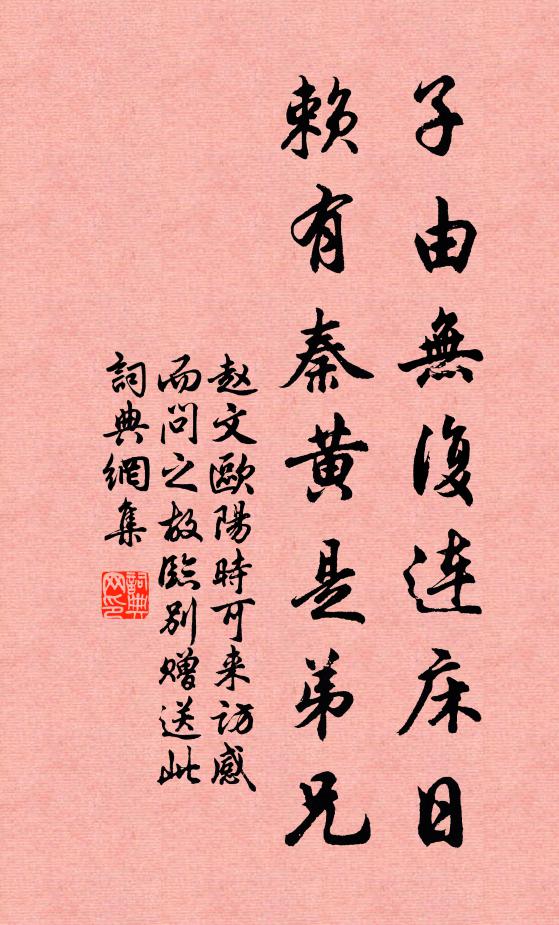 子由無復連床日
賴有秦黄是弟兄
赵文歐陽時可来访感
而问之故臨别赠送此
詞典網集
詞典网印